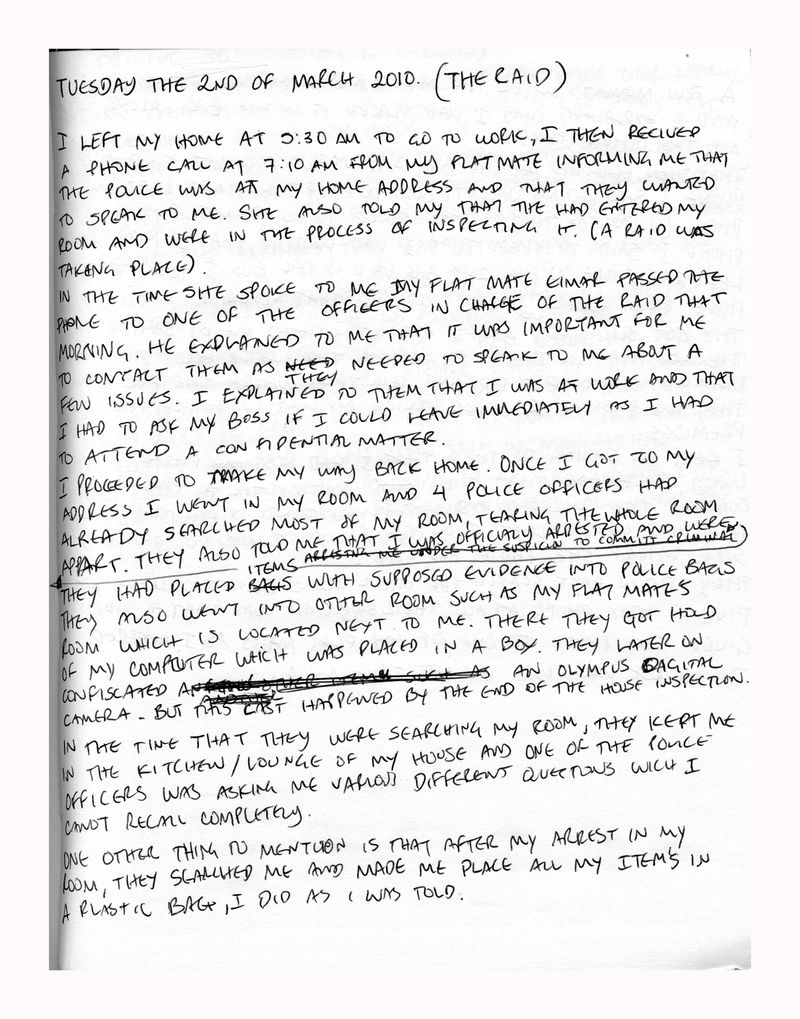 TUESDAY THE 2ND OF MARCH 2010. (THE RAID)
I LEFT MY HOME AT 5:30 AM TO GO TO WORK, I THEN RECIVED
A PHONE CALL AT 7:10 AM FROM MY FLATMATE INFORMING ME THAT
THE POLICE WAS AT MY HOME ADDRESS AND THAT THEY WANTED
TO SPEAK TO ME. SHE ALSO TOLD MY THAT THE HAD ENTERED MY
ROOM AND WERE IN THE PROCESS OF INSPECTING IT. (A RAID WAS
TAKING PLACE).
IN THE TIME SHE SPOKE TO ME MY FLAT MATE EIMAR PASSED THE
PHONE TO ONE OF THE OFFICERS IN CHARGE OF THE RAID THAT
MORNING. HE EXPLAINED TO ME THAT IT WAS IMPORTANT FOR ME
TO CONTACT THEM AS NEED NEEDED TO SPEAK TO ME ABOUT A
THEY
FEW ISSUES. I EXPLAINED TO THEM THAT I WAS AT WORK AND THAT
I HAD TO ASK MY BOSS IF I COULD LEAVE IMMEDIATELY AS I HAD
TO ATTEND A CONFIDENTIAL MATTER.
I PROCEEDED TO MAKE MY WAY BACK HOME. ONCE I GOT TO MY
ADDRESS I WENT IN MY ROOM AND 4 POLICE OFFICERS HAD
ALREADY SEARCHED MOST OF MY ROOM, TEARING THE WHOLE ROOM
APPART. THEY ALSO TOLD ME THAT I WAS OFFICIALY ARRESTED AND WERE
ITEMS ARRESTING ME UNDER THE SUSPICION TO COMMITT CRIMINAL
THEY HAD PLACED BAGS WITH SUPPOSED EVIDENCE INTO POLICE BAGS
THEY ALSO WENT INTO OTHER ROOM SUCH AS MY FLAT MATES
ROOM WHICH IS LOCATED NEXT TO ME. THERE THEY GOT HOLD
OF MY COMPUTER WHICH WAS PLACED IN A BOX. THEY LATER ON
CONFISCATED OTHER ITEMS SUCH AS AN OLYMPUS DAGITAL
CAMERA - BUT THIS LAST HAPPENED BY THE END OF THE HOUSE INSPECTION.
IN THE TIME THAT THEY WERE SEARCHING MY ROOM, THEY KEPT ME
IN THE KITCHEN / LOUNGE OF MY HOUSE AND ONE OF THE POLICE
OFFICERS WAS ASKING ME VARIOUS DIFFERENT QUESTIONS WICH I
CANOT RECALL COMPLETELY.
ONE OTHER THING TO MENTION IS THAT AFTER MY ARREST IN MY
ROOM, THEY SEARCHED ME AND MADE ME PLACE ALL MY ITEM'S IN
A PLASTIC BAG, I DID AS I WAS TOLD.